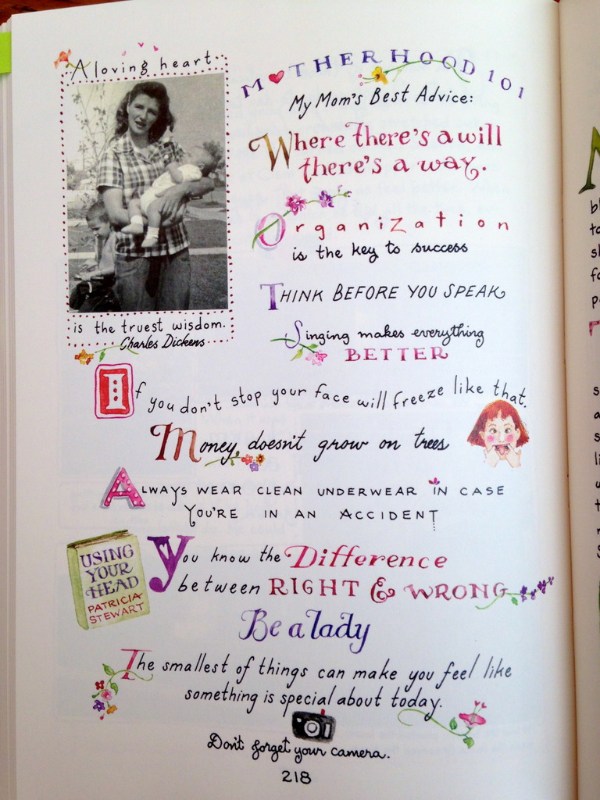 A loving heart
is the truest wisdom.
Charles Dickens
MOTHERHOOD 101
My Mom's Best Advice:
Where there's a will
there's a way.
Organization
is the key to success
THINK BEFORE YOU SPEAK
Singing makes everything
BETTER
If you don't stop your face will freeze like that.
Money doesn't grow on trees
ALWAYS WEAR CLEAN UNDERWEAR IN CASE
YOU'RE IN AN ACCIDENT
USING
YOUR
HEAD
PATRICIA
STEWART
You know the Difference
between RIGHT & WRONG
Be a lady
The smallest of things can make you feel like
something is special about today.
Don't forget your camera.
218